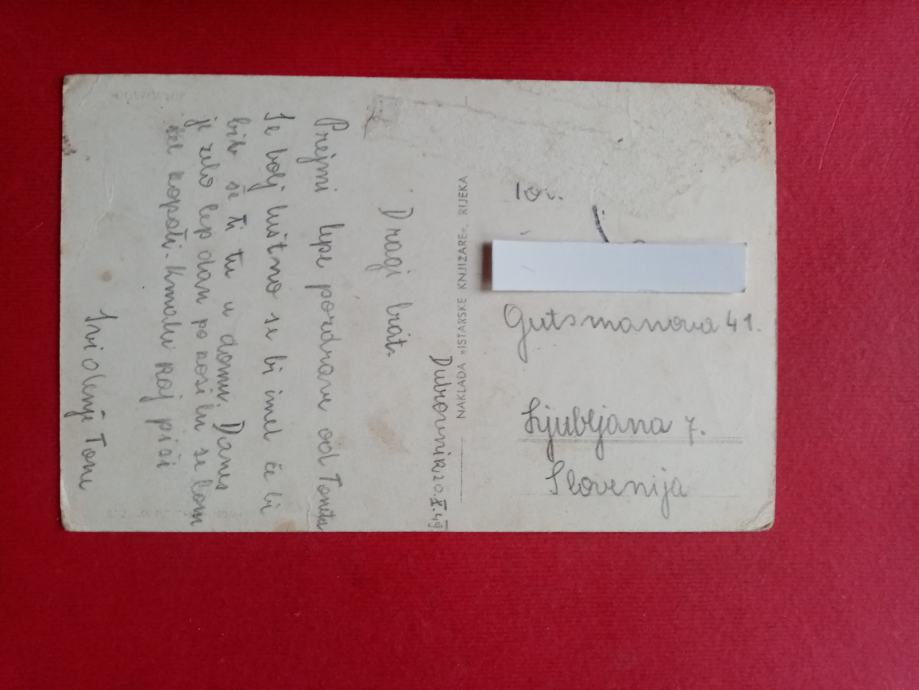 Dubrovnik 20.X.49
Dragi brat.
Prejmi lepe pozdrave od Toneta
Še bolj luštno se bi imel če bi
bil še ti tu v domu. Danes
je zelo lep dan po kosilu se bom
šel kopati. Kmalu kaj piši
Tone
NAKLADA »ISTARSKE KNJIŽARE«, RIJEKA
Tov.
Gutsmanova 41.
Ljubljana 7.
Slovenija